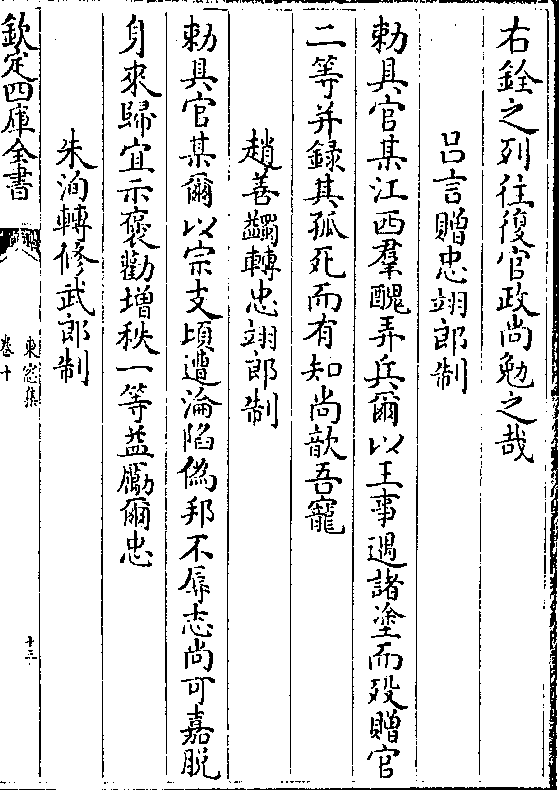 右銓之列往復官政尚勉之哉
吕言贈忠翊郎制
勅具官某江西羣醜弄兵爾以王事遇諸塗而殁贈官
二等并録其孤死而有知尚歆吾寵
趙善蠲轉忠翊郎制
勅具官某爾以宗支頃遭淪陷偽邦不辱志尚可嘉脱
身來歸宜示褒勸增秩一等益勵爾忠
朱洵轉修武郎制
欽定四庫全書
東窓集
卷十
十三